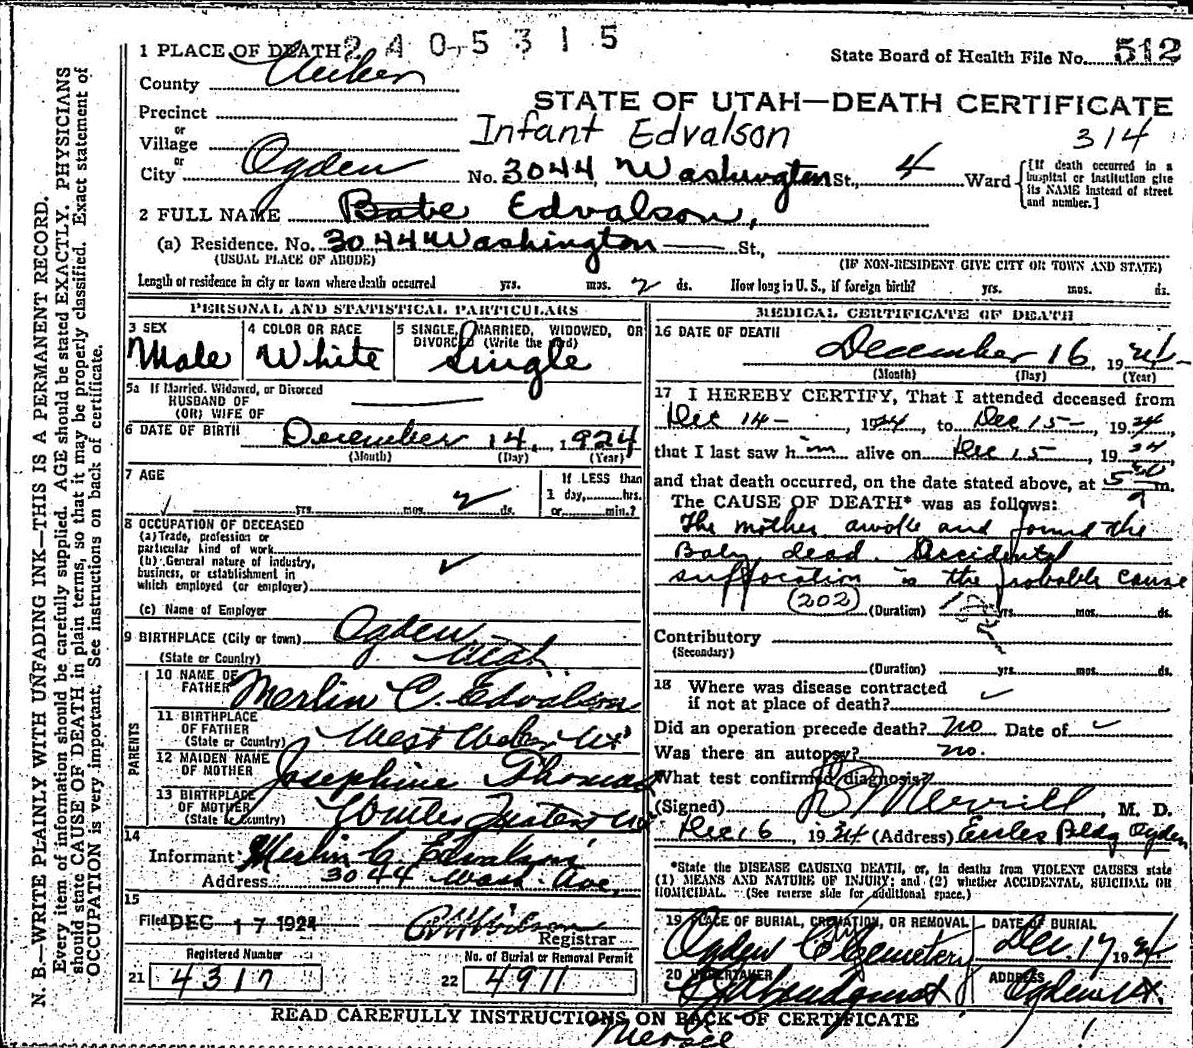 240-5315
1 PLACE OF DEATH
State Board of Health File No. 512
County Weber
STATE OF UTAH—DEATH CERTIFICATE
Precinct
or
Village
Infant Edvalson
314
or
City Ogden No. 3044 Washington St., 4 Ward
{If death occurred in a hospital or institution give its NAME instead of street and number.]
2 FULL NAME Babe Edvalson,
(a) Residence. No. 3044 Washington St.,
(USUAL PLACE OF ABODE) (IF NON-RESIDENT GIVE CITY OR TOWN AND STATE)
Length of residence in city or town where death occurred yrs. mos. 2 ds. How long in U. S., if foreign birth? yrs. mos. ds.
N. B.—WRITE PLAINLY WITH UNFADING INK—THIS IS A PERMANENT RECORD.
Every item of information should be carefully supplied. AGE should be stated EXACTLY. PHYSICIANS
should state CAUSE OF DEATH in plain terms, so that it may be properly classified. Exact statement of
OCCUPATION is very important. See instructions on back of certificate.
PERSONAL AND STATISTICAL PARTICULARS
3 SEX
Male
4 COLOR OR RACE
White
5 SINGLE, MARRIED, WIDOWED, OR
DIVORCED (Write the word)
Single
5a If Married, Widowed, or Divorced
HUSBAND OF
(OR) WIFE OF
6 DATE OF BIRTH December 14, 1924
(Month) (Day) (Year)
7 AGE
yrs. mos. 2 ds.
If LESS than
1 day, hrs.
or min.?
8 OCCUPATION OF DECEASED
(a) Trade, profession or
particular kind of work
(b) General nature of industry,
business, or establishment in
which employed (or employer)
(c) Name of Employer
9 BIRTHPLACE (City or town) Ogden
(State or Country) Utah
PARENTS
10 NAME OF
FATHER Merlin C. Edvalson
11 BIRTHPLACE
OF FATHER
(State or Country) West Weber Ut
12 MAIDEN NAME
OF MOTHER Josephine Thomas
13 BIRTHPLACE
OF MOTHER
(State or Country)
14
Informant Merlin C. Edvalson
Address 3044 Wash. Ave.
15
Filed DEC 17 1924
Registrar
Registered Number
21 4317
No. of Burial or Removal Permit
22 4911
MEDICAL CERTIFICATE OF DEATH
16 DATE OF DEATH
December 16, 1924
(Month) (Day) (Year)
17 I HEREBY CERTIFY, That I attended deceased from
Dec 14 - , 1924, to Dec 15 - , 1924
that I last saw him alive on Dec 15 , 1924
and that death occurred, on the date stated above, at 5 m.
The CAUSE OF DEATH* was as follows:
The mother awoke and found the
Baby dead. Accidental
suffocation is the probable cause
(202) (Duration) yrs. mos. ds.
Contributory
(Secondary)
(Duration) yrs. mos. ds.
18 Where was disease contracted
if not at place of death?
Did an operation precede death? no Date of
Was there an autopsy? no.
What test confirmed diagnosis?
(Signed) Merrill, M. D.
Dec 16 1924 (Address) Eccles Bldg Ogden
*State the DISEASE CAUSING DEATH, or, in deaths from VIOLENT CAUSES state
(1) MEANS AND NATURE OF INJURY; and (2) whether ACCIDENTAL, SUICIDAL OR
HOMICIDAL. (See reverse side for additional space.)
19 PLACE OF BURIAL, CREMATION, OR REMOVAL
Ogden C Cemetery
DATE OF BURIAL
Dec. 17 1924
20 UNDERTAKER
ADDRESS
Ogden Ut.
READ CAREFULLY INSTRUCTIONS ON BACK OF CERTIFICATE